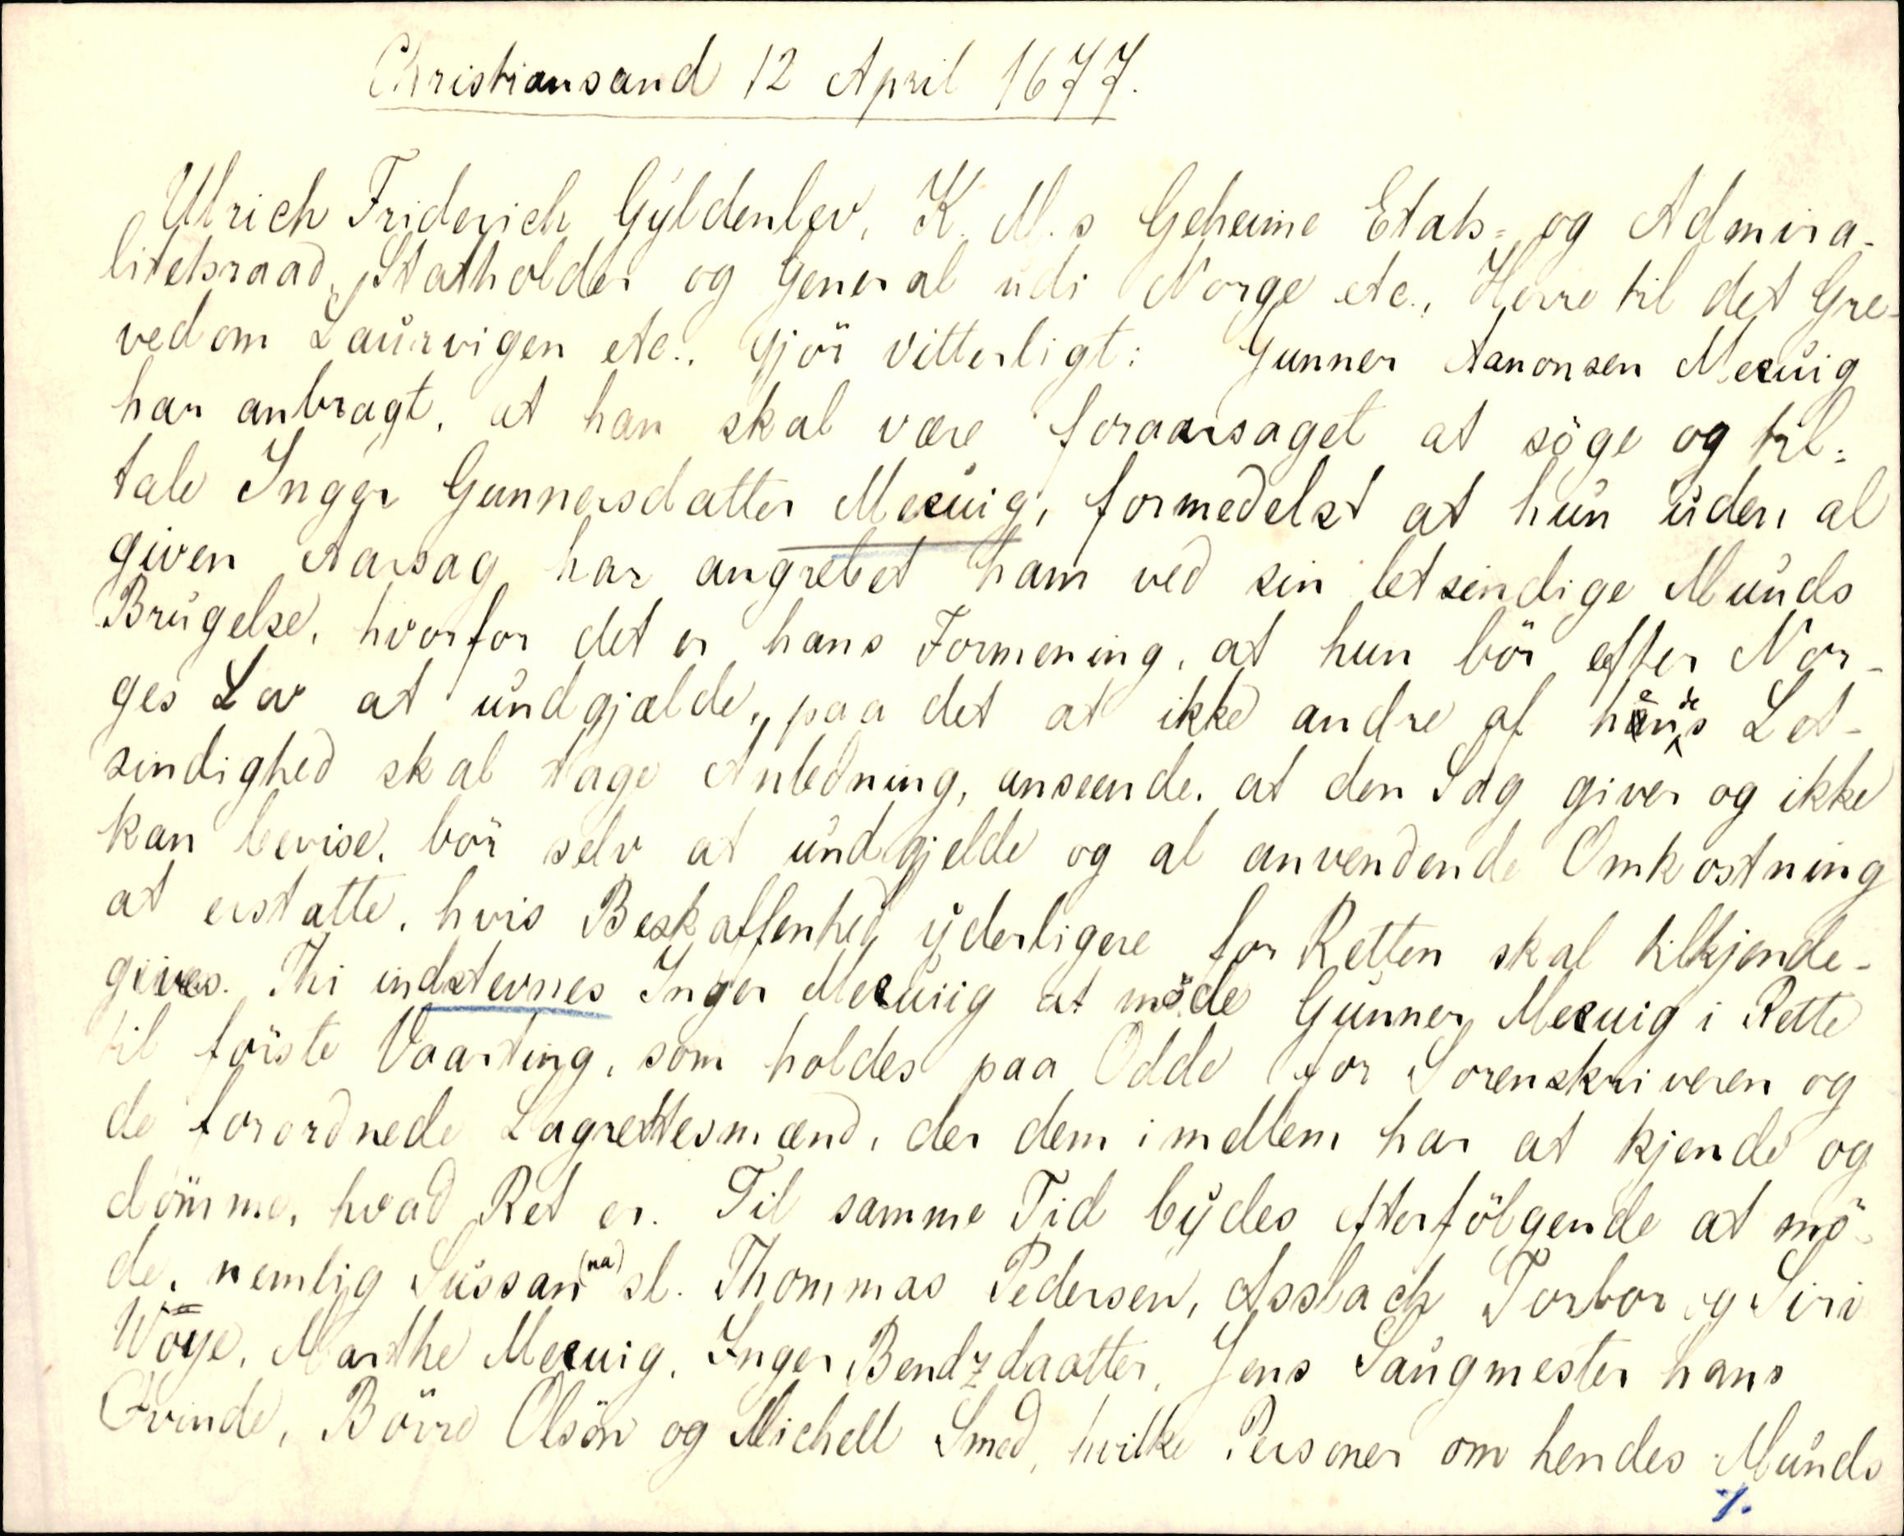 Christiansand 12 April 1677.
Ulrich Friderich Gyldenlev, K. M.s Geheime Etats- og Admira-
litetsraad, Statholder og General udi Norge etc., Herre til det Gre-
vedom Laurvigen etc., Gjör vitterligt: Gunner Aanonsen Mezuig
har anbragt, at han skal være foraarsaget at söge og til-
tale Inger Gunnersdatter Mezuig, formedelst at hun uden al
given Aarsag har angrebet ham ved sin letsindige Munds
Brugelse, hvorfor det er hans Formening, at hun bör efter Nor-
ges Lov at undgjælde, paa det at ikke andre af hendes Let-
sindighed skal tage Anledning, anseende, at den Sag giver og ikke
kan bevise, bör selv at undgjelde og al anvendende Omkostning
at erstatte, hvis Beskaffenhed yderligere for Retten skal tilkjende-
gives. Thi indstevnes Inger Mezuiig at möde Gunner Mezuig i Rette
til förste Vaarting, som holdes paa Odde for Sorenskriveren og
de forordnede Lagrettesmænd, der dem imellem har at kjende og
dömme, hvad Ret er. Til samme Tid bydes efterfölgende at mö-
de, nemlig Sussan(na) sl. Thommas Pedersen, Asslach Torbor og Siri
Wöye, Marthe Mezuig, Inger Bendzdaatter, Jens Saugmester hans
Qvinde, Börre Olsön og Michell Smed, hvilke Personer om hendes Munds
%.